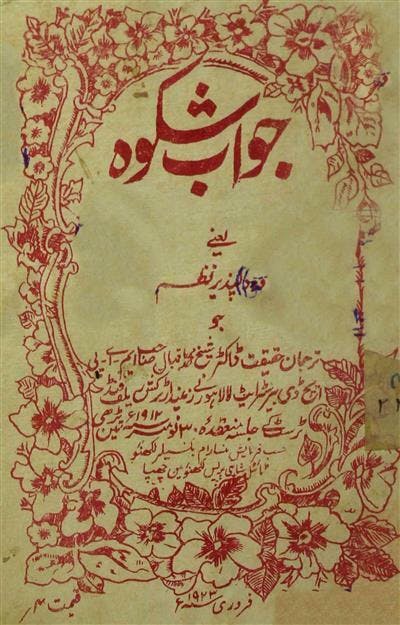 جواب شکوہ
یعنے
پذیر نظم
جو
ترجمان حقیقت ڈاکٹر شیخ محمد اقبال صاحب ایم۔ اے۔ پی
ایچ ڈی بیرسٹر ایٹ لا لاہور نے زمیندار ٹرکش ریلیف فنڈ
ٹرسٹ کے جلسہ منعقدہ ۳۰ نومبر ۱۹۱۲ء میں پڑھی
حسب فرمایش بکسیلر لکھنؤ
شاہی پریس لکھنؤ میں چھپا
فروری ۱۹۲۳ء
قیمت ۴؍